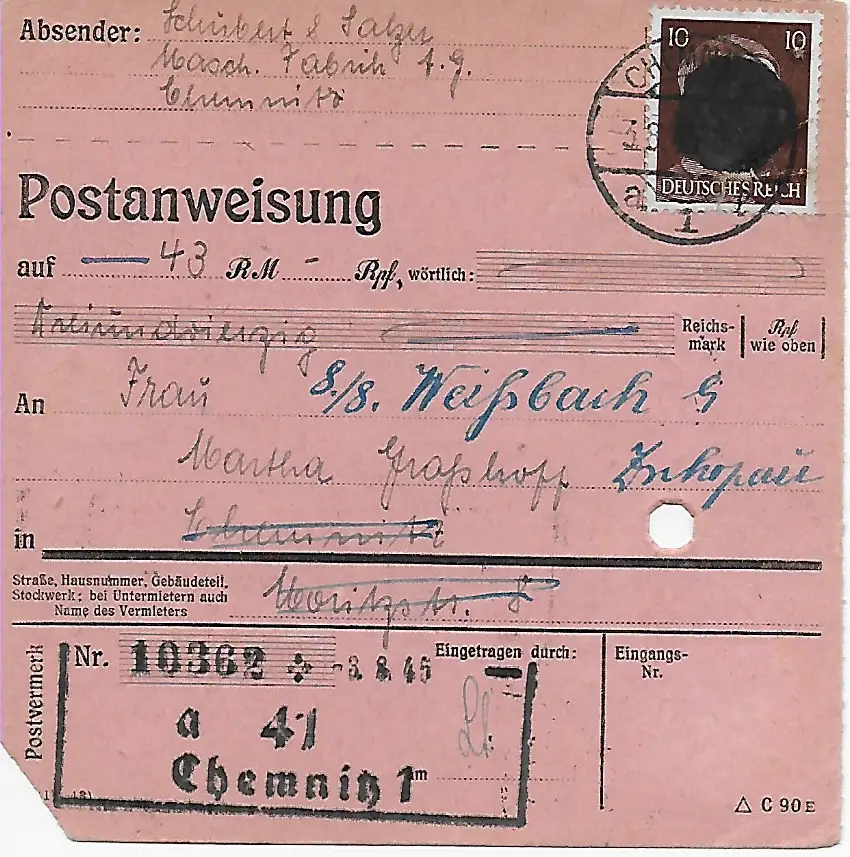 Absender: Schubert & Salzer
Masch. Fabrik A.G.
Chemnitz
10 10
DEUTSCHES REICH
CH
a 1
Postanweisung
auf 43 RM - Rpf, wörtlich:
Dreiundvierzig Reichs-
mark
Rpf
wie oben
An Frau b./b. Weißbach
Martha Graßhoff Zschopau
in Chemnitz
Straße, Hausnummer, Gebäudeteil,
Stockwerk; bei Untermietern auch
Name des Vermieters
Moritzstr. 8
Postvermerk
Nr. 10362 -3.8.45
Eingetragen durch:
Eingangs-
Nr.
a 41
Chemnitz 1
am
C 90 E